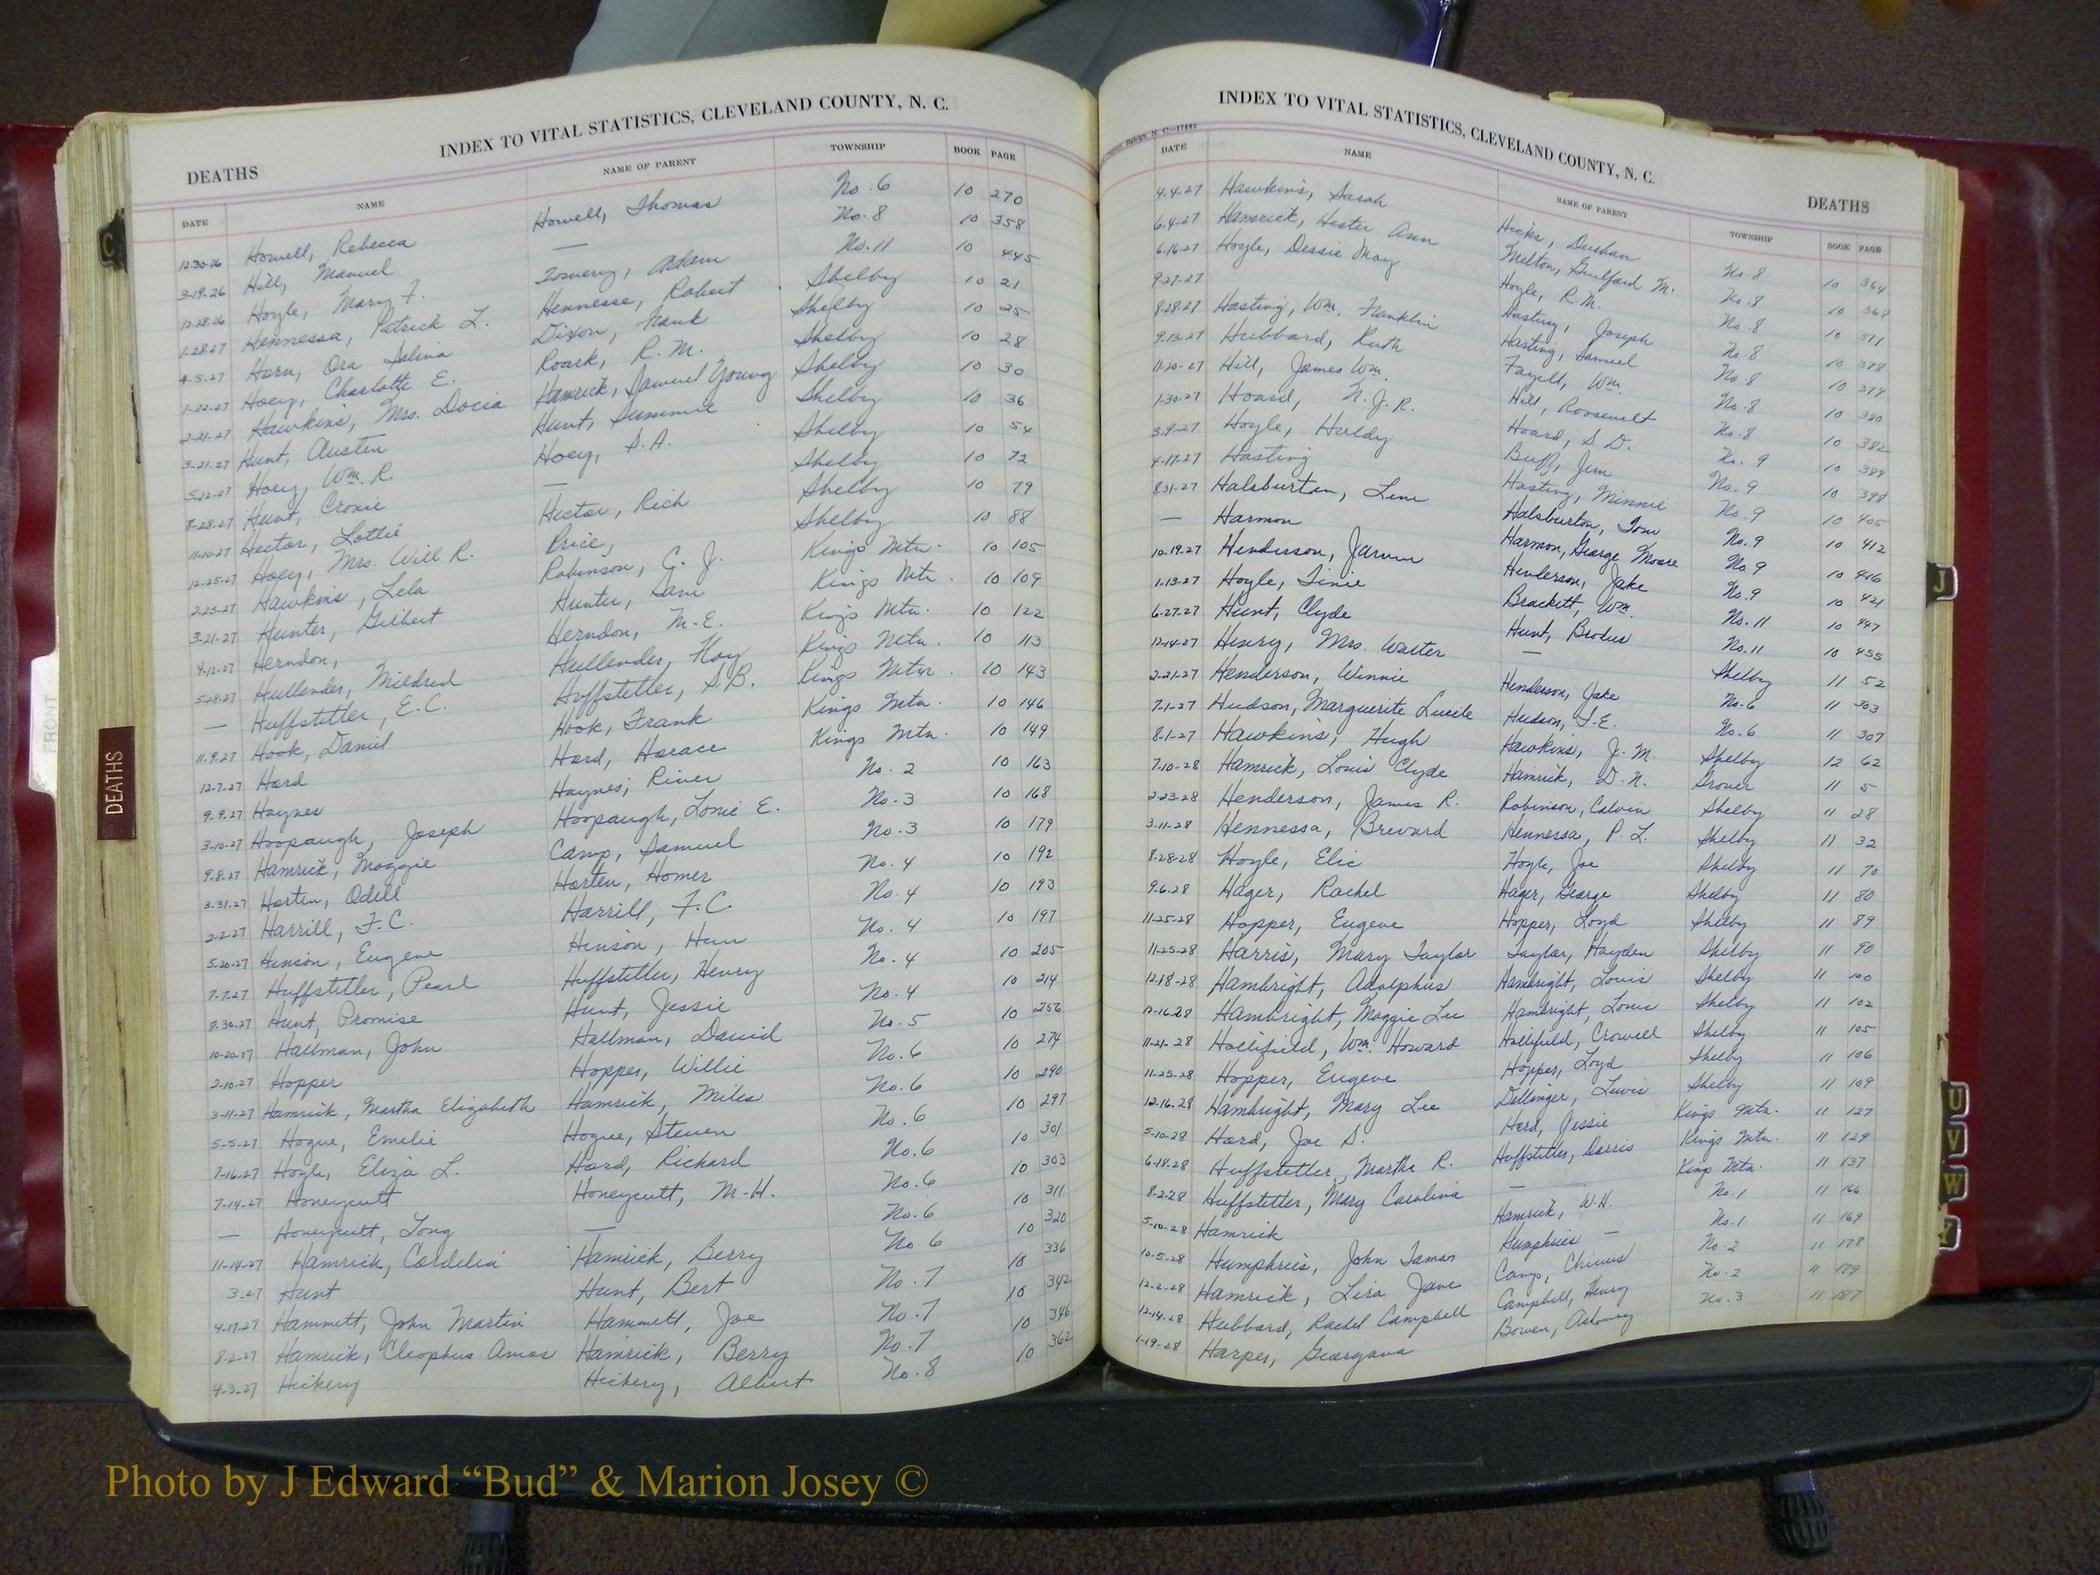 INDEX TO VITAL STATISTICS, CLEVELAND COUNTY, N. C.
DEATHS
DATE NAME NAME OF PARENT TOWNSHIP BOOK PAGE
12-30-26 Howell, Rebecca Howell, Thomas No. 6 10 270
3-19-26 Hill, Manuel — No. 8 10 358
12-28-26 Hoyle, Mary F. Towery, Adam No. 11 10 445
1-28-27 Hennessa, Patrick L. Hennesse, Robert Shelby 10 21
4-5-27 Horn, Ora Salina Dixon, Frank Shelby 10 25
1-22-27 Hoey, Charlotte E. Roark, R. M. Shelby 10 28
2-21-27 Hawkins, Mrs. Docia Hamrick, Samuel Young Shelby 10 30
3-21-27 Hunt, Austen Hunt, Summie Shelby 10 36
5-12-27 Hoey, Wm. R. Hoey, S. A. Shelby 10 54
8-28-27 Hunt, Cronie — Shelby 10 72
11-10-27 Hector, Lottie Hector, Rich Shelby 10 79
12-25-27 Hoey, Mrs. Will R. Price, Shelby 10 88
2-25-27 Hawkins, Lela Robinson, G. J. Kings Mtn. 10 105
3-21-27 Hunter, Gilbert Hunter, Sam Kings Mtn. 10 109
4-12-27 Herndon, Herndon, M. E. Kings Mtn. 10 122
5-28-27 Hullender, Mildred Hullender, Hoy Kings Mtn. 10 113
— Huffstetler, E. C. Huffstetler, S. B. Kings Mtn. 10 143
11-9-27 Hook, Daniel Hook, Frank Kings Mtn. 10 146
12-7-27 Hord Hord, Horace Kings Mtn. 10 149
9-9-27 Haynes Haynes, River No. 2 10 163
3-10-27 Hoopaugh, Joseph Hoopaugh, Lonie E. No. 3 10 168
9-8-27 Hamrick, Maggie Camp, Samuel No. 3 10 179
3-31-27 Horten, Odell Horten, Homer No. 4 10 192
2-2-27 Harrill, F. C. Harrill, F. C. No. 4 10 193
5-20-27 Hinson, Eugene Hinson, No. 4 10 197
7-7-27 Huffstetler, Pearl Huffstetler, Henry No. 4 10 205
8-30-27 Hunt, Promise Hunt, Jessie No. 4 10 214
10-20-27 Hallman, John Hallman, David No. 5 10 256
2-10-27 Hopper Hopper, Willie No. 6 10 274
3-11-27 Hamrick, Martha Elizabeth Hamrick, Miles No. 6 10 290
5-5-27 Hogue, Emelie Hogue, Steven No. 6 10 297
7-16-27 Hoyle, Eliza L. Hord, Richard No. 6 10 301
7-14-27 Honeycutt Honeycutt, M. H. No. 6 10 303
— Honeycutt, Long — No. 6 10 311
11-14-27 Hamrick, Cordelia Hamrick, Berry No. 6 10 320
3-27 Hunt Hunt, Bert No. 7 10 336
4-17-27 Hammett, John Martin Hammett, Joe No. 7 10 342
8-2-27 Hamrick, Cleophus Amos Hamrick, Berry No. 7 10 346
4-3-27 Hickery Hickery, Albert No. 8 10 362
INDEX TO VITAL STATISTICS, CLEVELAND COUNTY, N. C.
DEATHS
DATE NAME NAME OF PARENT TOWNSHIP BOOK PAGE
4-4-27 Hawkins, Sarah Hicks, No. 8 10 364
6-4-27 Hamrick, Hester Ann Melton, Guilford M. No. 8 10 368
6-16-27 Hoyle, Dessie May Hoyle, R. M. No. 8 10
9-27-27 Hasting, Joseph No. 8 10 378
8-28-27 Hasting, Wm. Franklin Hasting, Samuel No. 8 10 379
9-13-27 Hubbard, Ruth Wm. No. 8 10 380
11-20-27 Hill, James Wm. Hill, Roosevelt No. 8 10 382
1-30-27 Hoard, N. J. R. Hoard, S. D. No. 9 10 389
3-9-27 Hoyle, Huldy Buff, Jim No. 9 10 398
4-17-27 Hasting Hasting, Minnie No. 9 10 405
8-31-27 Halsburton, Halsburton, Tom No. 9 10 412
— Harmon Harmon, George Moore No. 9 10 416
10-19-27 Henderson, Henderson, Jake No. 9 10 421
1-13-27 Hoyle, Brackett, Wm. No. 11 10 447
6-27-27 Hunt, Clyde Hunt, Brodus No. 11 10 455
12-14-27 Henry, Mrs. Walter — Shelby 11 52
2-21-27 Henderson, Winnie Henderson, Jake No. 6 11 303
7-1-27 Hudson, Marguerite Lucile Hudson, T. E. No. 6 11 307
8-1-27 Hawkins, Hugh Hawkins, J. M. Shelby 12 62
7-10-28 Hamrick, Louis Clyde Hamrick, D. N. Grover 11 5
2-23-28 Henderson, James R. Robinson, Calvin Shelby 11 28
3-11-28 Hennessa, Brevard Hennessa, P. L. Shelby 11 32
8-28-28 Hoyle, Elic Hoyle, Joe Shelby 11 70
9-6-28 Hager, Rachel Hager, George Shelby 11 80
11-25-28 Hopper, Eugene Hopper, Loyd Shelby 11 89
11-25-28 Harris, Mary Taylor Taylor, Hayden Shelby 11 90
12-18-28 Hambright, Adolphus Hambright, Louis Shelby 11 100
12-16-28 Hambright, Maggie Lee Hambright, Louis Shelby 11 102
11-21-28 Hollifield, Wm. Howard Hollifield, Crowell Shelby 11 105
11-25-28 Hopper, Eugene Hopper, Loyd Shelby 11 106
12-16-28 Hambright, Mary Lee Dellinger, Lewis Shelby 11 109
5-10-28 Hord, Joe S. Hord, Jessie Kings Mtn. 11 127
6-18-28 Huffstetler, Martha R. Huffstetler, Dorris Kings Mtn. 11 129
8-2-28 Huffstetler, Mary Carolina — Kings Mtn. 11 137
5-10-28 Hamrick Hamrick, W. H. No. 1 11 166
10-5-28 Humphries, John Humphries — No. 1 11 169
12-2-28 Hamrick, Lira Jane Camp, No. 2 11 178
12-14-28 Hubbard, Rachel Campbell Campbell, Henry No. 2 11 179
1-19-28 Harper, Georgana Bowen, Asbury No. 3 11 187
DEATHS
C
J
U
V
W
FRONT
Photo by J Edward “Bud” & Marion Josey ©